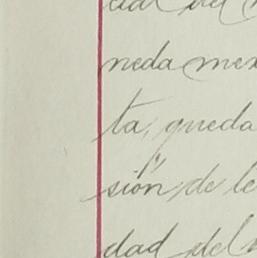 neda mex
ta, queda
sión de le
dad del